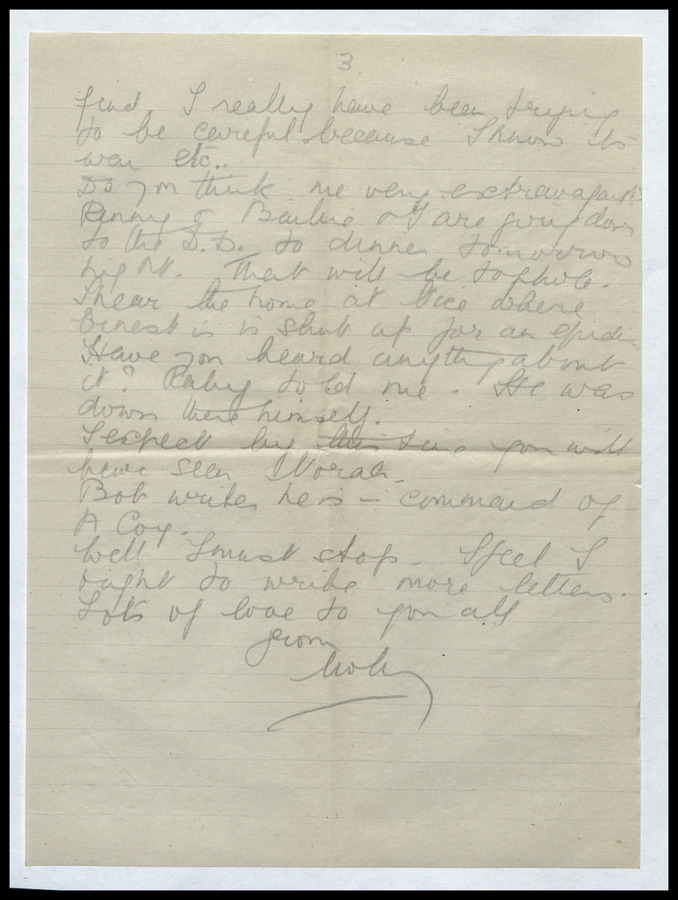 3
find. I really have been trying
to be careful because I know its
war etc..
Do you think me very extravagant?
Penny & Bailie & I are going down
to the D.D. to dinner tomorrow
night. That will be tophole.
I hear the home at Nice where
Ernest is is shut up for an epidemic
Have you heard anything about
it? Raby told me. He was
down there himself.
I expect by this time you will
have seen Norah.
Bob writes he is in command of
A Coy.
Well I must stop. I feel I
ought to write more letters.
Lots of love to you all
from